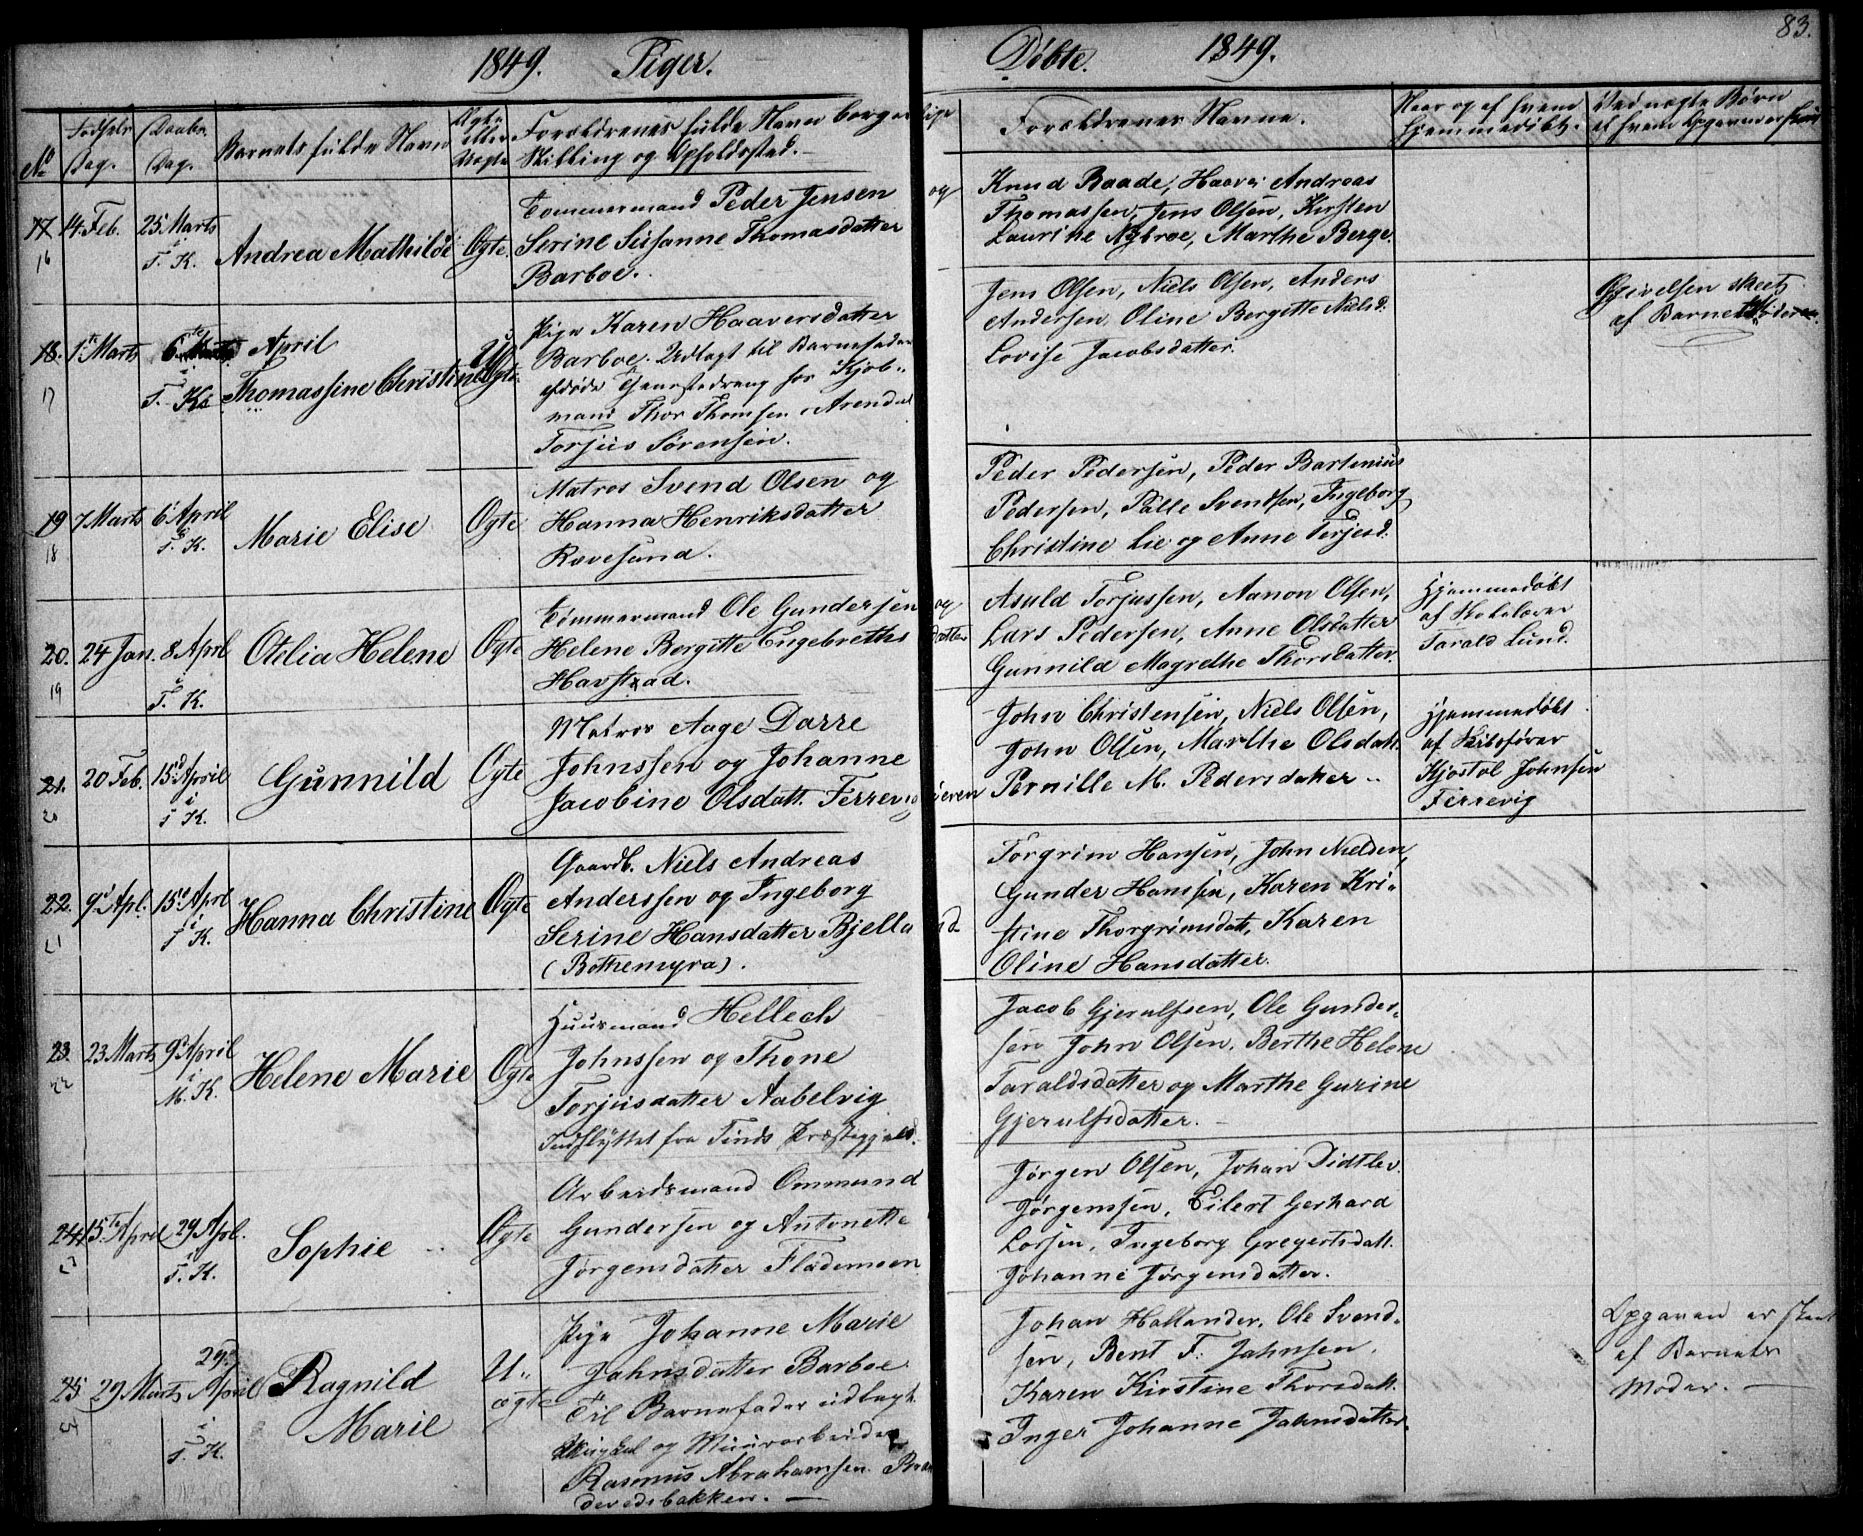 83.
1849. Piger. Döbte. 1849.
No
Fødsels Dag.
Daabs Dag.
Barnets fulde Navn
Ægte eller Uægte
Forældrenes fulde Navn borgerlige
Stilling og Opholdssted.
Faddernes Navne.
Naar og af hvem
hjemmedöbt.
Ved uægte Børn
af hvem Opgaven er skeet
17 16
14. Feb.
25. Marts i T. K.
Andrea Mathilde
Ægte.
Tømmermand Peder Jensen og
Serine Susanne Thomasdatter
Barboe.
Knud Baade, Haaver Andreas
Thomassen, Jens Olsen, Kirsten
Laurine Nybroe, Marthe Berge.
18. 17
1 Marts
6te April i T. K.
Thomassine Christine
Uægte
Pige Karen Haaversdatter
Barboe. Udlagt til Barnefader
Tjenestedreng hos Kjøb-
mand Thor Thomsen Arendal
Torjus Sørensen.
Jens Olsen, Niels Olsen, Anders
Andersen, Oline Bergitte Nielsd.
Lovise Jacobsdatter.
Opgivelsen skeet
af Barnets Moder
19 18
7 Marts
6 April i T. K.
Marie Elise
Ægte
Matros Svend Olsen og
Hanna Henriksdatter
Rævesand.
Peder Pedersen, Peder Bartenius
Pedersen, Palle Svendsen, Ingeborg
Christine Lie og Anne Terjesd.
20. 19
24 Jan.
8 April i T. K.
Otelia Helene
Ægte
Tømmermand Ole Gundersen og
Helene Bergitte Engebrethsdatter
Havstad.
Asuld Torjussen, Aanon Olsen,
Lars Pedersen, Anne Olsdatter
Gunnild Magrethe Thorsdatter.
Hjemmedøbt
af Skolelærer
Tarald Lund.
21. 20
20 Feb.
15d April i T K.
Gunnild
Ægte
Matros Aage Darre
Johnssen og Johanne
Jacobine Olsdatt. Ferrevigieren
John Christensen, Niels Olsen,
John Olsen, Marthe Olsdatt.
Pernille M. Pedersdatter
Hjemmedøbt
af Skibsfører
Kjøstol Johnsen
Ferrevig
22. 21
9d Apl.
15d Aprl i T K.
Hanna Christine
Ægte
Gaardb. Niels Andreas
Anderssen og Ingeborg
Serine Hansdatter Bjelland
(Bothemyra).
Torgrim Hansen, John Nielsen,
Gunder Hanssen, Karen Kri-
stine Thorgrimsdat, Karen
Oline Hansdatter.
23. 22
23 Marts
9d April i M. K.
Helene Marie
Ægte
Huusmand Hellech
Johnssen og Thone
Torjusdatter Aabelvig
Indflyttet fra Tinds Præstegjeld.
Jacob Gjerulfsen, Ole Gunder-
sen John Olsen, Berthe Helene
Taraldsdatter og Marthe Gurine
Gjerulfsdatter.
24 23
15. te April
29 Apl. i T. K.
Sophie
Ægte
Arbeidsmand Ommund
Gundersen og Antonette
Jörgensdatter Flademoen
Jørgen Olsen, Johan Didtlev
Jørgenssen, Eilert Gerhard
Larsen, Ingeborg Gregertsdatt.
Johanne Jørgensdatter.
25 24
29 Marts
29. April i T. K.
Ragnild
Marie
U-
ægte
Pige Johanne Marie
Jahnsdatter Barboe
Til Barnefader udlagt
Ungkal og Muurarbeider
Rasmus Abrahamsen. Bran
devedsbakken.
Johan Hollander, Ole Svend-
sen, Bent F. Jahnsen,
Karen Kirstine Thorsdatt.
Inger Johanne Jahnsdatter.
Opgaven er skeet
af Barnets
Moder.